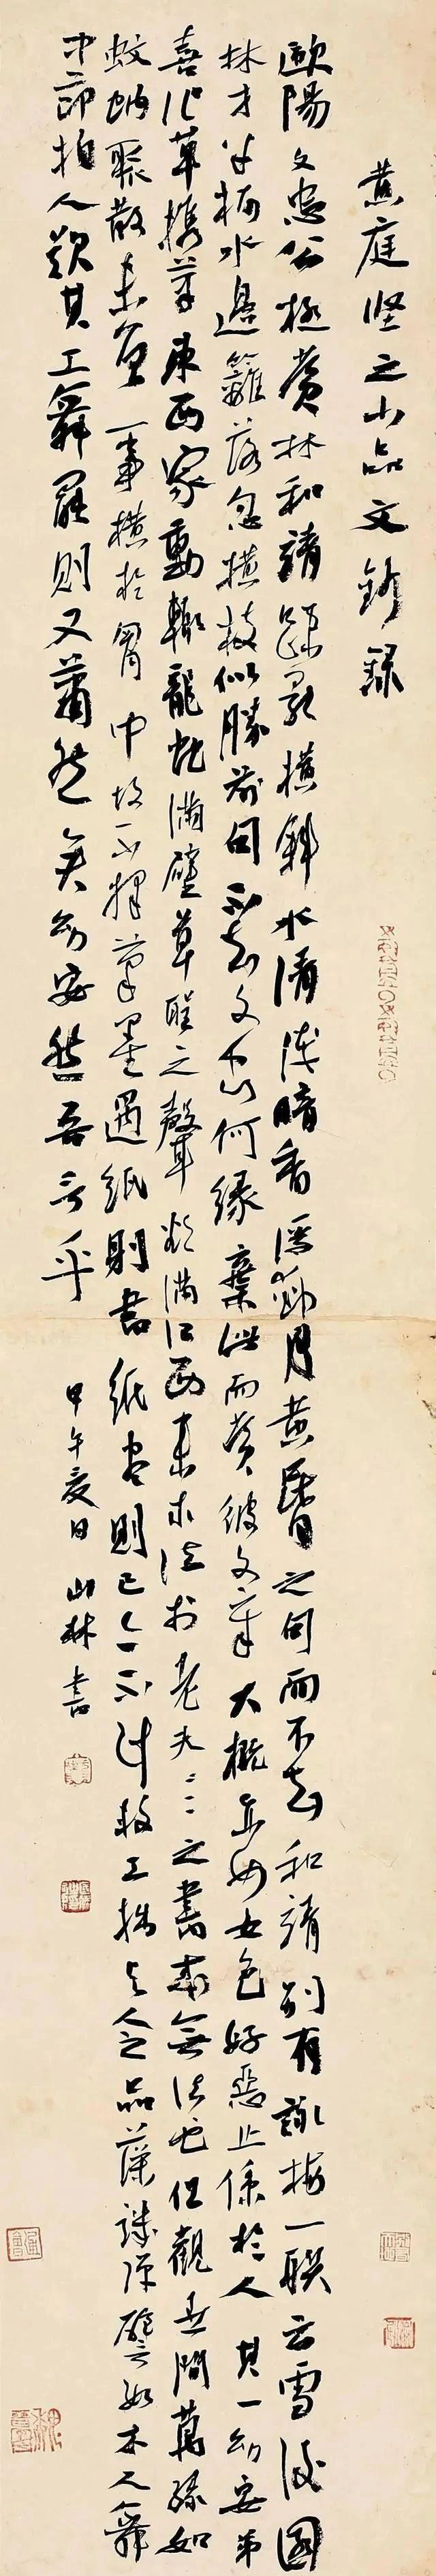 黄庭坚之小品文鈔録
歐陽文忠公極賞林和靖疎影横斜水清浅暗香浮動月黄昏之句而不知和靖别有詠梅一联云雪後園
林才半水邊籬落忽横枝似勝前句不知文忠何緣棄此而賞彼文章大概亦如女色好惡止係於人 其一幼安弟
喜作草携筆東西家動輒龍蛇滿壁草聖之聲欲滿江西来求法於老夫〻〻之書本無法也但觀世間萬緣如
蚊蚋聚散未曾一事横於胷中故不擇筆墨遇紙則書紙盡則已亦不計較工拙与人之品藻譏弹譬如木人舞
中節拍人歎其工舞罷則又蕭然矣幼安然吾言乎
甲午夏日 山林書